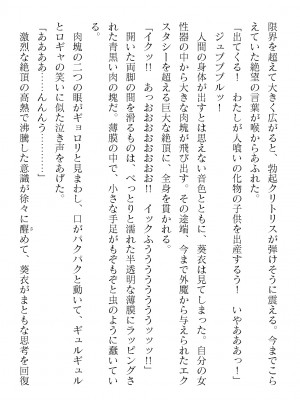 限界を超えて大きく広がると、勃起クリトリスが弾けそうに震える。今までこら
えていた絶望の言葉が喉からあふれた。
「出てくる　わたしが人喰いの化物の子供を出産するう！　いやあああっ！
ジュブブブルッ！
人間の身体が出すとは思えない音色とともに、葵衣は見てしまった。自分の女
性器の中から大きな肉塊が飛び出す。その途端、今まで外魔から与えられたエク
スタシーを超える巨大な絶頂に、全身を貫かれる。
「イクッ!!　あっおおおおおっ!!　イックふううううううううッッ!!」
開いた両脚の間を滑るものは、べっとりと濡れた半透明な薄膜にラッピングさ
れた青黒い肉の塊だ。薄膜の中で、小さな手足がもぞもぞと虫のように蠢いてい
る。
肉塊の二つの眼がギョロリと見まわし、口がパクパクと動いて、ギュルギュル
とロギャの笑いに似た泣き声をあげた。
「ああああ……んんんう…………」
激烈な絶頂の高熱で沸騰した意識が徐々に醒めて、葵衣がまともな思考を回復